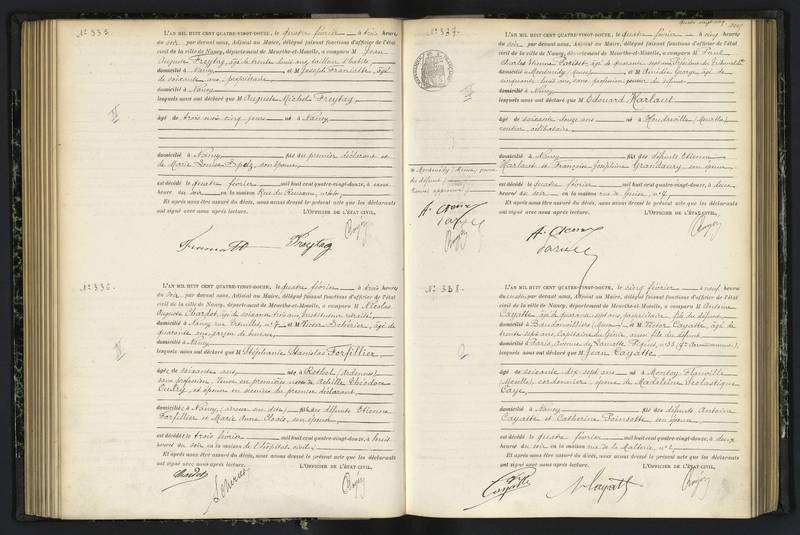 N° 335.
L'AN MIL HUIT CENT QUATRE-VINGT-DOUZE, le quatre février à trois heures
du soir, par devant nous, Adjoint au Maire, délégué faisant fonctions d'officier de l'état
civil de la ville de Nancy, département de Meurthe-et-Moselle, a comparu M Jean
Auguste Freytag, âgé de trente huit ans, tailleur d'habits,
domicilié à Nancy et M Joseph
de soixante ans, propriétaire
domicilié à Nancy
lesquels nous ont déclaré que M Auguste Michel Freytag,
âgé de trois mois cinq jours né à Nancy
domicilié à Nancy fils du premier déclarant et
de Marie Louise son épouse
est décédé le quatre février mil huit cent quatre-vingt-douze, à onze
heures du soir en la maison Rue du Ruisseau,
Et après nous être assuré du décès, nous avons dressé le présent acte que les déclarants
ont signé avec nous après lecture. L'OFFICIER DE L'ÉTAT CIVIL,
Freytag
N° 336.
L'AN MIL HUIT CENT QUATRE-VINGT-DOUZE, le quatre février à trois heures
du soir, par devant nous, Adjoint au Maire, délégué faisant fonctions d'officier de l'état
civil de la ville de Nancy, département de Meurthe-et-Moselle, a comparu M Nicolas
Auguste Chardot, âgé de soixante trois ans, instituteur retraité,
domicilié à Nancy rue n° 7 et M Victor âgé de
quarante ans, garçon de bureau,
domicilié à Nancy
lesquels nous ont déclaré que M Stéphanie Stanislas Forfillier,
âgée de soixante ans née à Rethel (Ardennes)
sans profession, veuve en premières noces de Achille Théodore
et épouse en secondes du premier déclarant,
domiciliée à Nancy, fille des défunts Etienne
Forfillier et Marie Anne son épouse
est décédée le trois février mil huit cent quatre-vingt-douze, à huit
heures du soir en la maison de l'hôpital civil
Et après nous être assuré du décès, nous avons dressé le présent acte que les déclarants
ont signé avec nous après lecture. L'OFFICIER DE L'ÉTAT CIVIL,
Chardot
N° 337.
L'AN MIL HUIT CENT QUATRE-VINGT-DOUZE, le quatre février à cinq heures
du soir, par devant nous, Adjoint au Maire, délégué faisant fonctions d'officier de l'état
civil de la ville de Nancy, département de Meurthe-et-Moselle, a comparu M Paul
Charles âgé de quarante sept ans, Président du Tribunal
domicilié à Montmédy (Meuse) et M Amédée George, âgé de
cinquante ans, sans profession,
domicilié à Nancy
lesquels nous ont déclaré que M Edouard Harlaut
âgé de soixante douze ans né à (Meurthe)
rentier, célibataire,
domicilié à Nancy fils des défunts Etienne
Harlaut et Françoise Joséphine son épouse
est décédé le quatre février mil huit cent quatre-vingt-douze, à deux
heures du soir en la maison rue de Guise, n° 7,
Et après nous être assuré du décès, nous avons dressé le présent acte que les déclarants
ont signé avec nous après lecture. L'OFFICIER DE L'ÉTAT CIVIL,
N° 338.
L'AN MIL HUIT CENT QUATRE-VINGT-DOUZE, le cinq février à neuf heures
du matin, par devant nous, Adjoint au Maire, délégué faisant fonctions d'officier de l'état
civil de la ville de Nancy, département de Meurthe-et-Moselle, a comparu M Antoine
Cayatte, âgé de quarante sept ans, propriétaire, fils du défunt,
domicilié à Baudonvilliers (Meuse) et M Victor Cayatte, âgé de
trente sept ans, Capitaine du Génie, aussi fils du défunt
domicilié à Paris, Avenue de Lamotte Piquet, n° 33
lesquels nous ont déclaré que M Jean Cayatte,
âgé de soixante dix sept ans né à Montoy Flanville
(Moselle), cordonnier, époux de Madeleine Scolastique
Caye,
domicilié à Nancy fils des défunts Antoine
Cayatte et Catherine Poinsotte son épouse
est décédé le quatre février mil huit cent quatre-vingt-douze, à deux
heures du soir en la maison rue de la Malterie, n° 2,
Et après nous être assuré du décès, nous avons dressé le présent acte que les déclarants
ont signé avec nous après lecture. L'OFFICIER DE L'ÉTAT CIVIL,
Cayatte
Cayatte